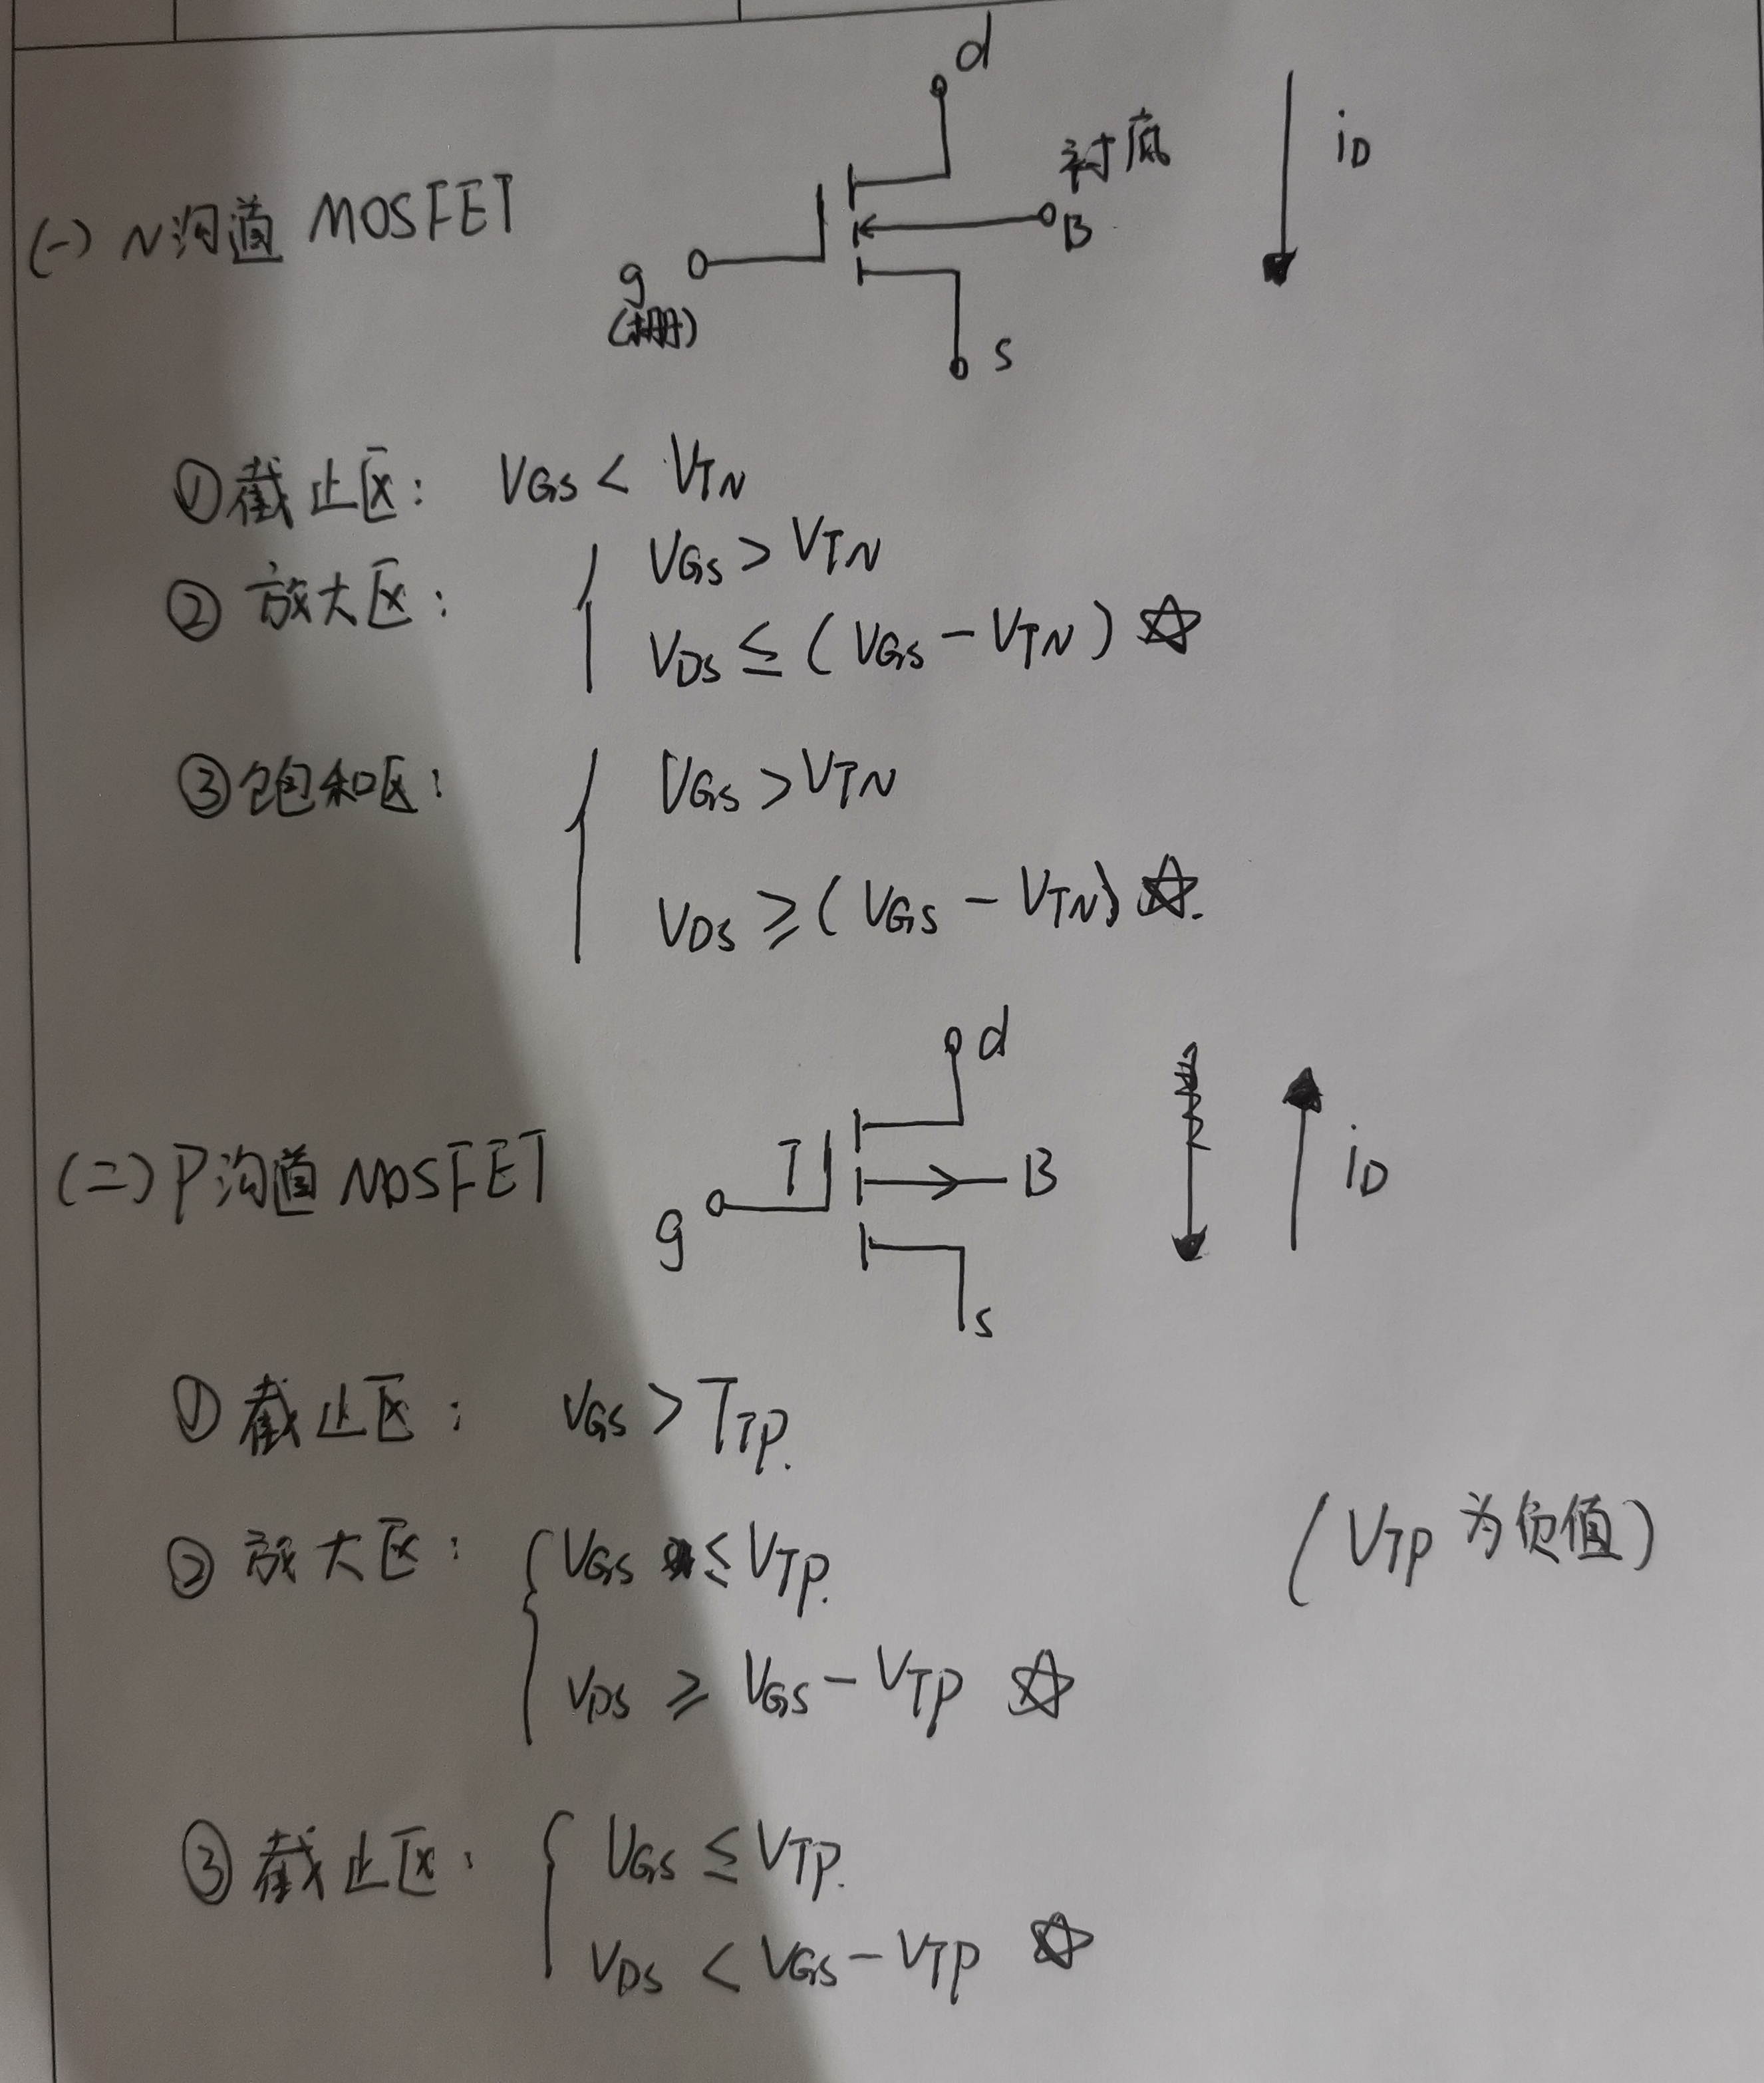 d
衬底
iD
(一) N沟道 MOSFET
B
g
(栅)
s
①截止区: VGS < VTN
②放大区: VGS > VTN
VDS ≤ (VGS - VTN) ☆
③饱和区: VGS > VTN
VDS ≥ (VGS - VTN) ☆.
d
(二) P沟道 MOSFET
T
B
iD
g
s
①截止区: VGS > TTP.
②放大区: VGS ≤ VTP.
(VTP 为负值)
VDS ≥ VGS - VTP ☆
③截止区: VGS ≤ VTP.
VDS < VGS - VTP ☆